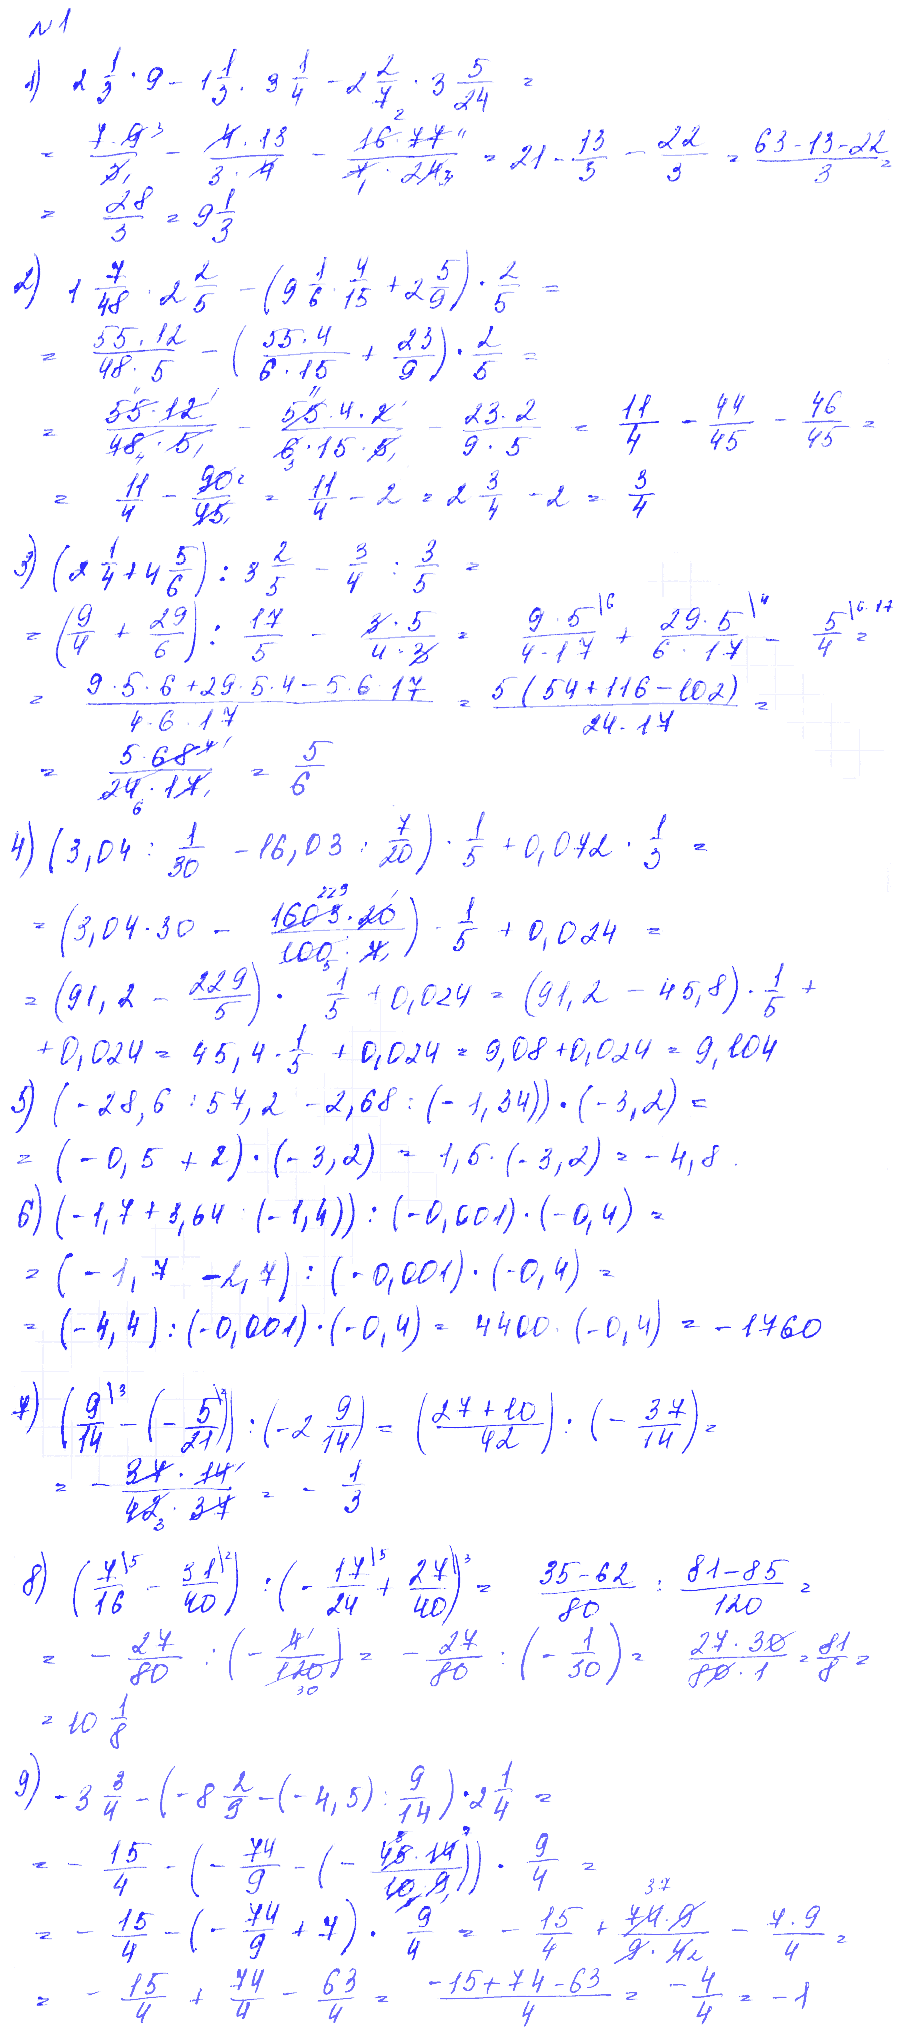 №1
1) 2 1/3 · 9 - 1 1/3 · 3 1/4 - 2 2/7 · 3 5/24 =
= 7·9 3/3 1 - 4·13/3·4 - 2 16·77 11/7 1·24 3 = 21 - 13/3 - 22/3 = 63-13-22/3 =
= 28/3 = 9 1/3
2) 1 7/48 · 2 2/5 - (9 1/6 · 4/15 + 2 5/9) · 2/5 =
= 55·12/48·5 - (55·4/6·15 + 23/9) · 2/5 =
= 11 55·12 1/48 4·5 1 - 11 55·4·2 1/6 3·15·5 1 - 23·2/9·5 = 11/4 - 44/45 - 46/45 =
= 11/4 - 90 2/45 1 = 11/4 - 2 = 2 3/4 - 2 = 3/4
3) (2 1/4 + 4 5/6) : 3 2/5 - 3/4 : 3/5 =
= (9/4 + 29/6) : 17/5 - 3·5/4·3 = 9·5/4·17 \6 + 29·5/6·17 \4 - 5/4 \6·17 =
= 9·5·6+29·5·4-5·6·17/4·6·17 = 5(54+116-102)/24·17 =
= 5·68 4 1/24 6·17 1 = 5/6
4) (3,04 : 1/30 - 16,03 : 7/20) · 1/5 + 0,072 · 1/3 =
= (3,04·30 - 229 1603·20 1/100 5·7 1) · 1/5 + 0,024 =
= (91,2 - 229/5) · 1/5 + 0,024 = (91,2 - 45,8) · 1/5 +
+ 0,024 = 45,4 · 1/5 + 0,024 = 9,08 + 0,024 = 9,104
5) (-28,6 : 57,2 - 2,68 : (-1,34)) · (-3,2) =
= (-0,5 + 2) · (-3,2) = 1,5 · (-3,2) = -4,8.
6) (-1,7 + 3,64 : (-1,4)) : (-0,001) · (-0,4) =
= (-1,7 - 2,7) : (-0,001) · (-0,4) =
= (-4,4) : (-0,001) · (-0,4) = 4400 · (-0,4) = -1760
7) (9/14 \3 - (-5/21 \2)) : (-2 9/14) = (27+10/42) : (-37/14) =
= -37·14 1/42 3·37 = -1/3
8) (7/16 \5 - 31/40 \2) : (-17/24 \5 + 27/40 \3) = 35-62/80 : 81-85/120 =
= -27/80 : (-4 1/120 30) = -27/80 : (-1/30) = 27·30/80·1 = 81/8 =
= 10 1/8
9) -3 3/4 - (-8 2/9 - (-4,5) : 9/14) · 2 1/4 =
= -15/4 - (-74/9 - (-45·14/10·9)) · 9/4 =
= -15/4 - (-74/9 + 7) · 9/4 = -15/4 + 37 74·9/9·4 2 - 7·9/4 =
= -15/4 + 74/4 - 63/4 = -15+74-63/4 = -4/4 = -1